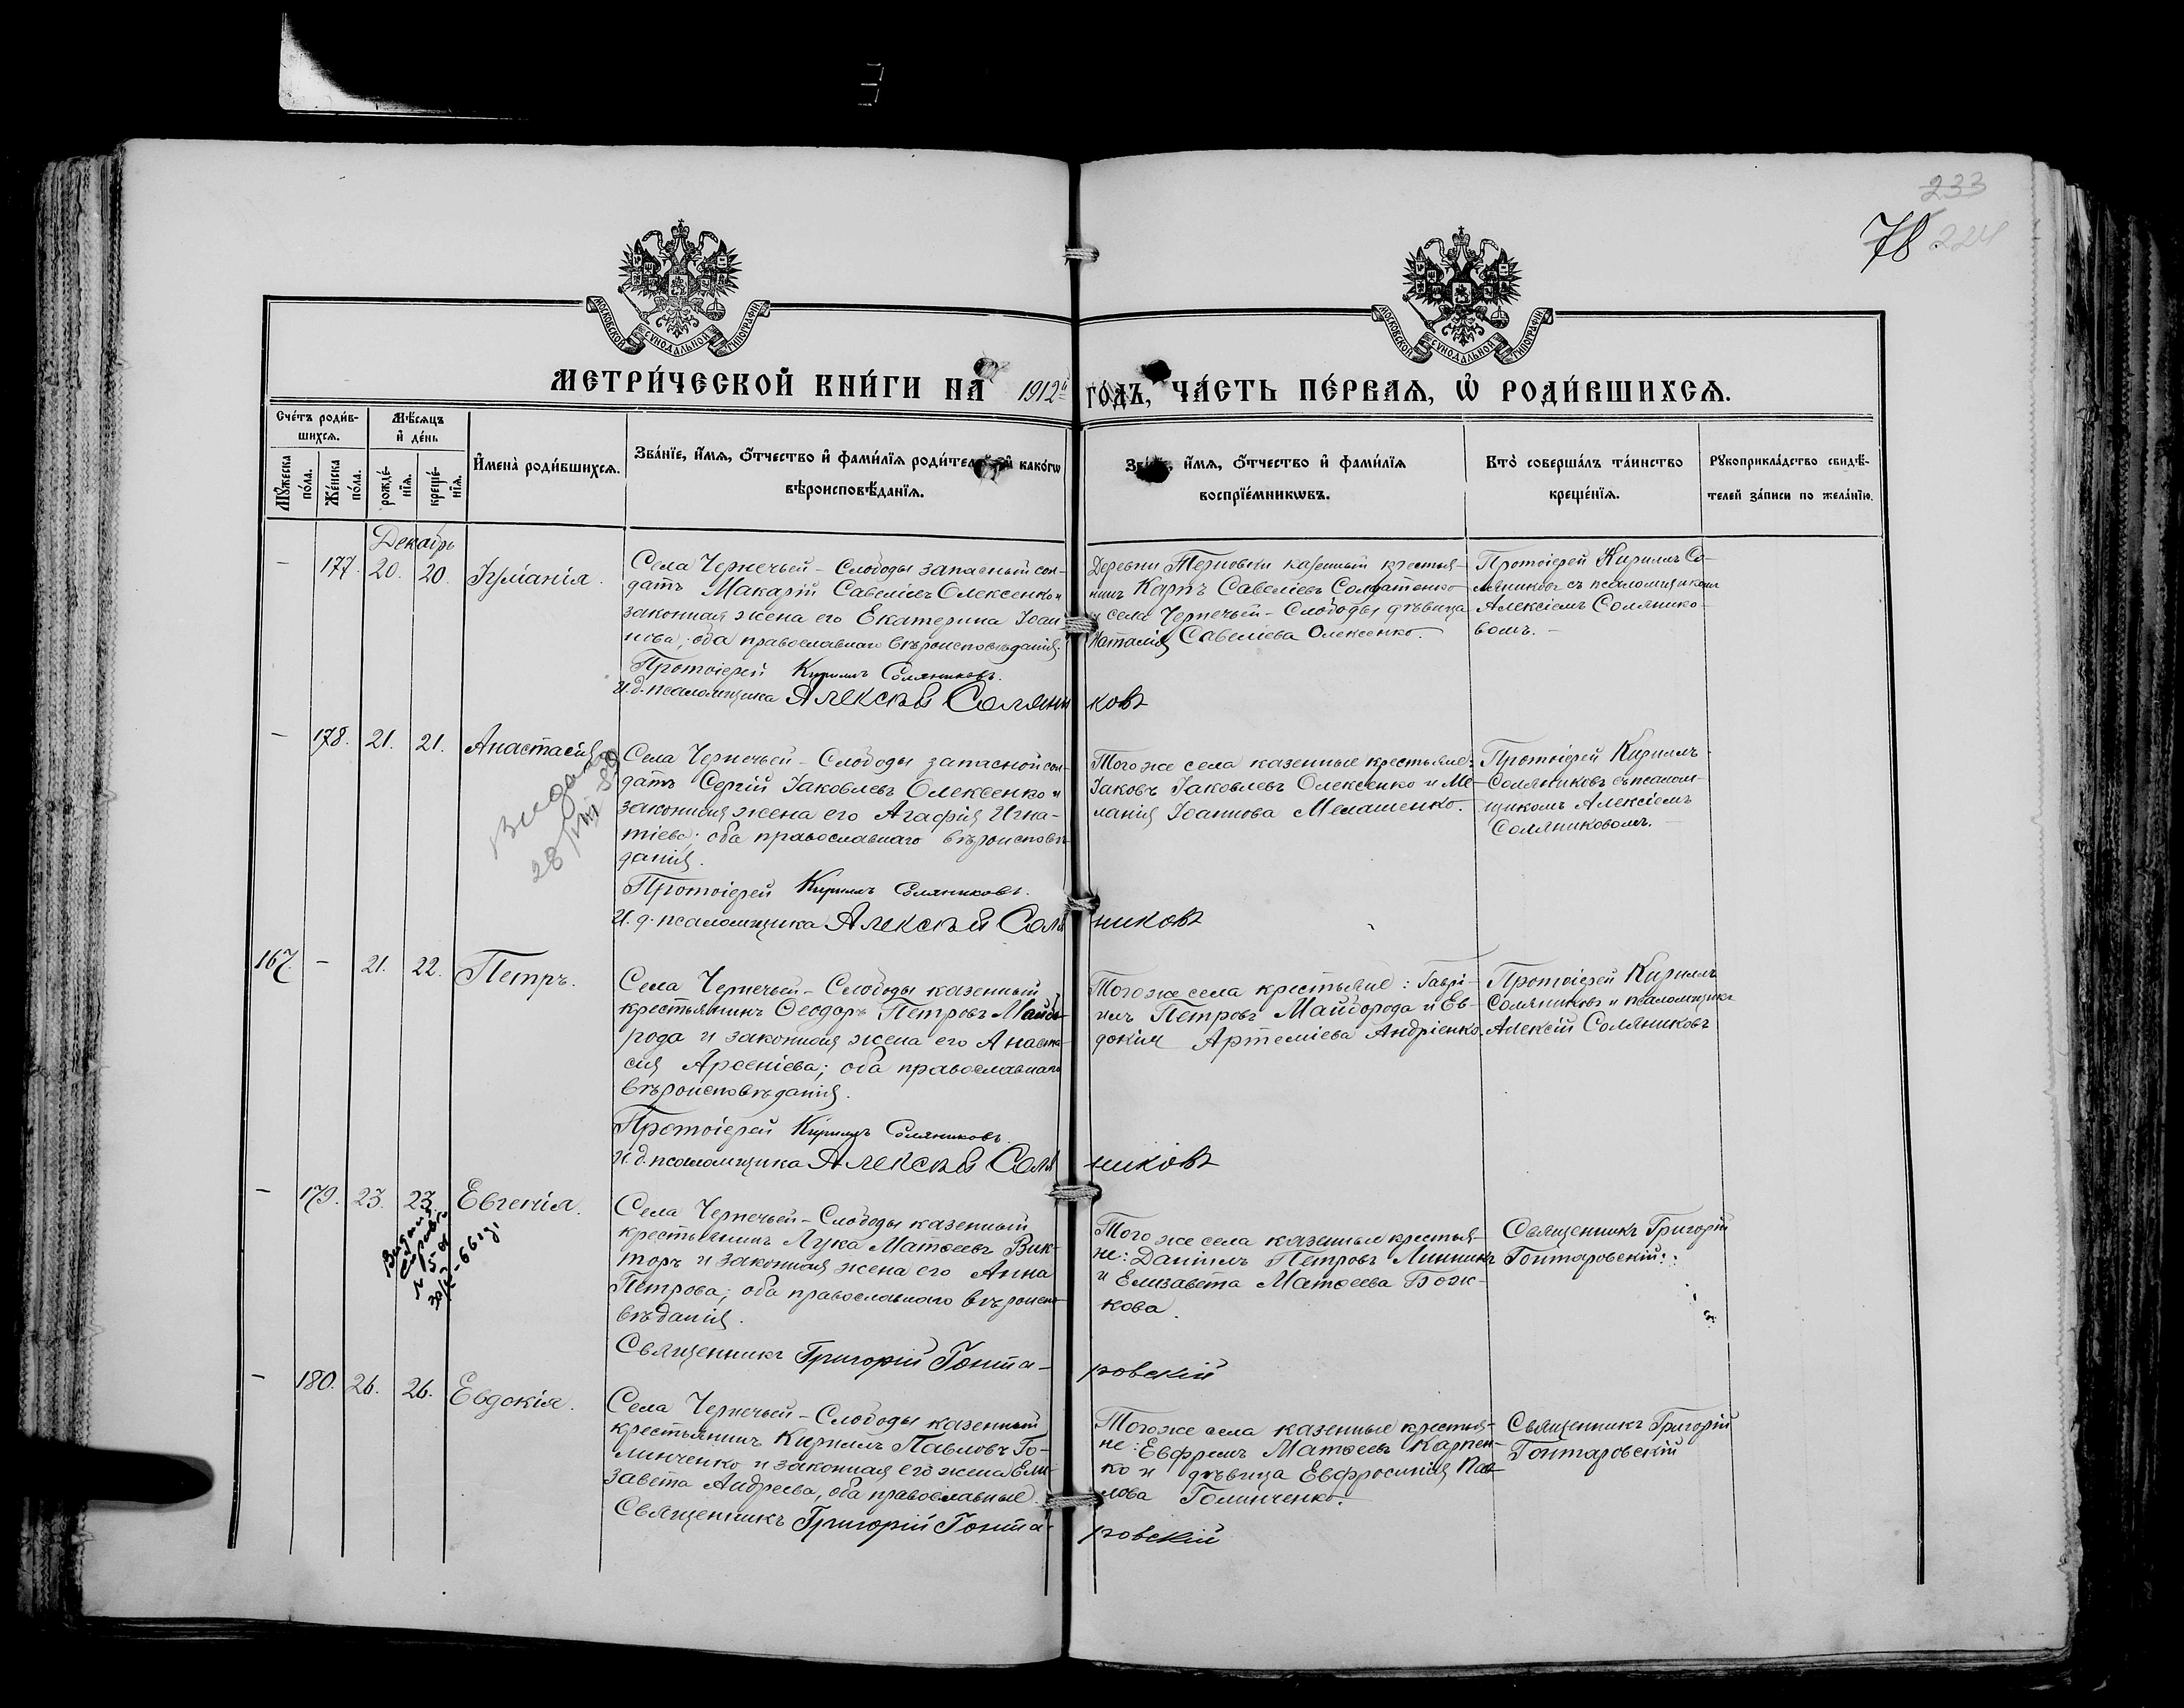 233
78 224
МОСКОВСКОЙ СѴНОДАЛЬНОЙ ТИПОГРАФІИ
МОСКОВСКОЙ СѴНОДАЛЬНОЙ ТИПОГРАФІИ
МЕТРИ́ЧЕСКОЙ КНИ́ГИ НА 1912й ГО́ДЪ, ЧА́СТЬ ПЕ́РВАѦ, Ѡ҆ РОДИ́ВШИХСѦ.
Сче́тъ роди́в-
шихсѧ.
Мѣ́сѧцъ
и҆ де́нь
Мꙋ́жеска
по́ла.
Же́нска
по́ла.
рожде́-
нїѧ.
креще́-
нїѧ.
И҆мена̀ роди́вшихсѧ.
Зва́нїе, и҆́мѧ, ѻ҆́тчество и҆ фами́лїѧ роди́тел и҆ како́гѡ
вѣроисповѣ́данїѧ.
и҆́мѧ, ѻ҆́тчество и҆ фами́лїѧ
воспрїе́мникѡвъ.
Кто̀ соверша́лъ та́инство
креще́нїѧ.
Рꙋкоприкла́дство свидѣ́-
телей за́писи по жела́нїю.
Декабрь
— 177. 20. 20. Іуліанія.
Села Чернечьей-Слободы запасный сол-
датъ Макарій Савеліевъ Олексенко и
законная жена его Екатерина Іоан-
нова; оба православнаго вѣроисповѣданія.
Протоіерей Кириллъ Соляниковъ.
И. д. псаломщика Алексѣй Соляниковъ
Деревни Терновки казенный крестья-
нинъ Карпъ Савеліевъ Солдатенко
и села Чернечьей-Слободы дѣвица
Наталія Савеліева Олексенко.
Протоіерей Кириллъ Со-
ляниковъ съ псаломщикомъ
Алексіемъ Солянико-
вомъ.
— 178. 21. 21. Анастасія
Видано
28/VIII 59
Села Чернечьей-Слободы запасной сол-
датъ Сергій Іаковлевъ Олексенко и
законная жена его Агафія Игна-
тіева; оба православнаго вѣроисповѣ-
данія.
Протоіерей Кириллъ Соляниковъ.
И. д. псаломщика Алексѣй Соляниковъ
Того же села казенные крестьяне:
Іаковъ Іаковлевъ Олексенко и Ме-
ланія Іоаннова Мелашенко.
Протоіерей Кириллъ
Соляниковъ съ псалом-
щикомъ Алексіемъ
Соляниковомъ.
167. — 21. 22. Петръ.
Села Чернечьей-Слободы казенный
крестьянинъ Ѳеодоръ Петровъ Майбо-
рода и законная жена его Анаста-
сія Арсеніева; оба православнаго
вѣроисповѣданія.
Протоіерей Кириллъ Соляниковъ.
И. д. псаломщика Алексѣй Соляниковъ
Того же села крестьяне: Гаврі-
илъ Петровъ Майборода и Ев-
докія Артеміева Андріенко.
Протоіерей Кириллъ
Соляниковъ и псаломщикъ
Алексій Соляниковъ
— 179. 23. 23. Евгенія.
Села Чернечьей-Слободы казенный
крестьянинъ Лука Матѳеевъ Вик-
торъ и законная жена его Анна
Петрова; оба православнаго вѣроиспо-
вѣданія.
Священникъ Григорій Гонтаровскій
Того же села казенные крестья-
не: Даніилъ Петровъ Линникъ
и Елизавета Матѳеева Бож-
кова.
Священникъ Григорій
Гонтаровскій.
— 180. 26. 26. Евдокія.
Села Чернечьей-Слободы казенный
крестьянинъ Кириллъ Павловъ Го-
линченко и законная его жена Ели-
завета Андреева, оба православные.
Священникъ Григорій Гонтаровскій
Того же села казенные крестья-
не: Евфремъ Матѳеевъ Карпен-
ко и дѣвица Евфросинія Пав-
лова Голинченко.
Священникъ Григорій
Гонтаровскій